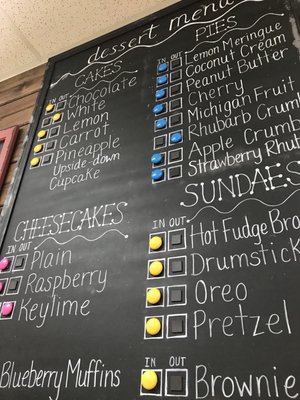 dessert menu
CAKES
IN OUT
Chocolate
White
Lemon
Carrot
Pineapple
Upside-down
Cupcake
PIES
IN OUT
Lemon Meringue
Coconut Cream
Peanut Butter
Cherry
Michigan Fruit
Rhubarb Crumb
Apple Crumb
Strawberry Rhub
CHEESECAKES
IN OUT
Plain
Raspberry
Keylime
SUNDAES
IN OUT
Hot Fudge Bro
Drumstick
Oreo
Pretzel
Blueberry Muffins
IN OUT
Brownie